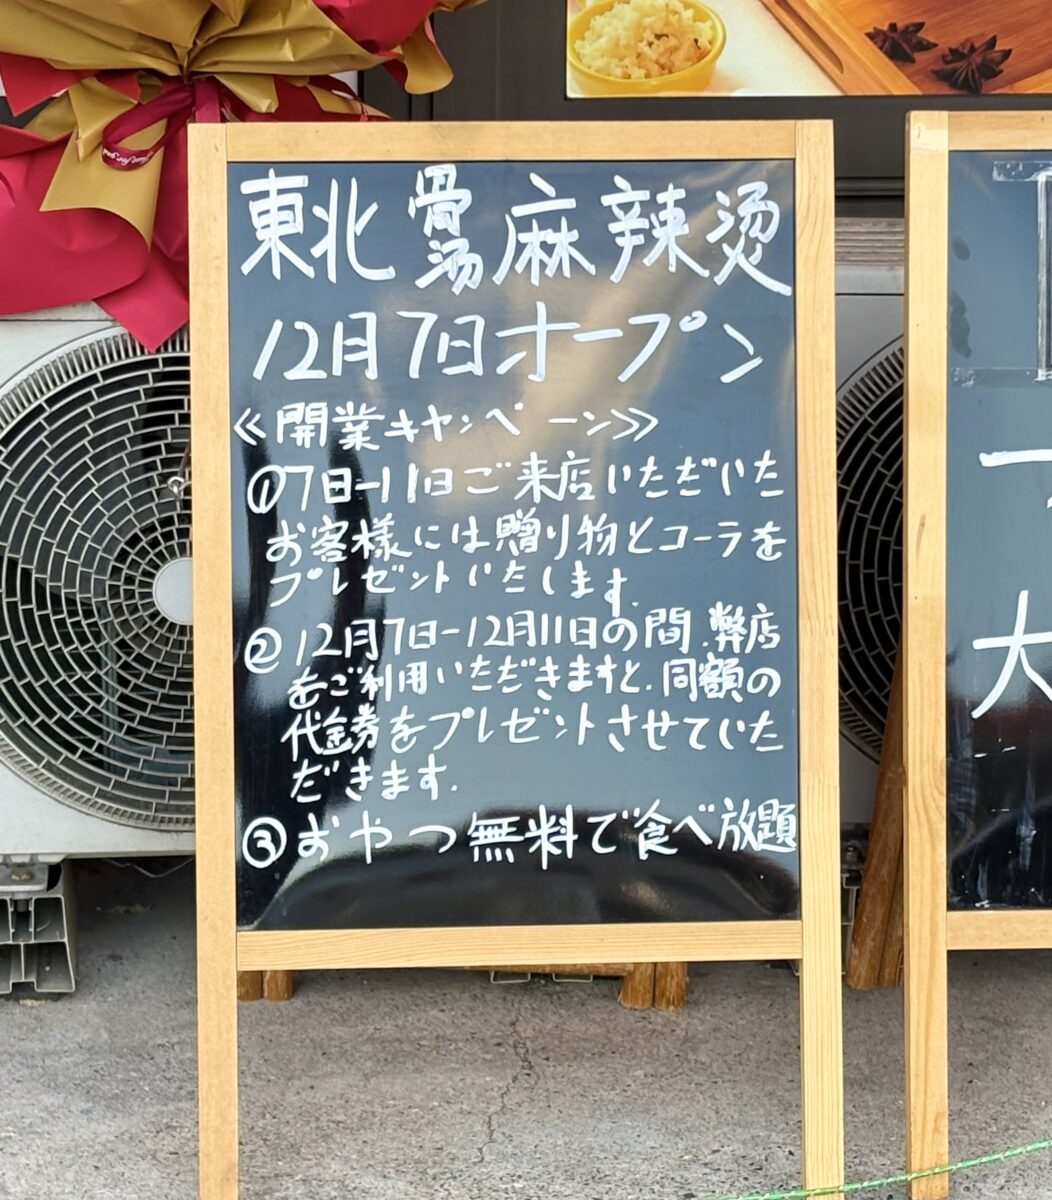 東北 骨汤麻辣烫
12月7日オープン
≪開業キャンペーン≫
①7日-11日ご来店いただいた
お客様には贈り物とコーラを
プレゼントいたします.
②12月7日-12月11日の間.弊店
をご利用いただきますと.同額の
代金券をプレゼントさせていた
だきます.
③おやつ無料で食べ放題
大